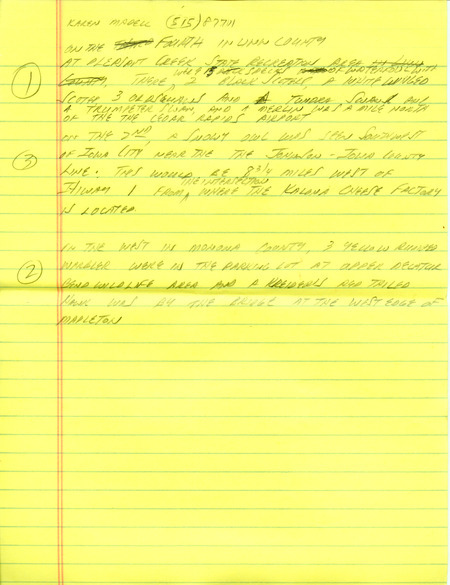 KAREN (515) 87711
ON THE FOURTH IN LINN COUNTY
AT PLEASANT CREEK STATE RECREATION AREA
WERE 15 SPECIES OF WATERFOWL WITH
THERE 2 BLACK SCOTERS, A WHITE WINGED
1
SCOTER 3 OLDSQUAWS AND A TUNDRA SWAN AND
A TRUMPETER SWAN, AND A MERLIN WAS A MILE NORTH
OF THE THE CEDAR RAPIDS AIRPORT
ON THE 2ND, A SNOWY OWL WAS SEEN SOUTHWEST
3
OF IOWA CITY NEAR THE THE JOHNSON - IOWA COUNTY
LINE. THIS WOULD BE 8 3/4 MILES WEST OF
THE INTERSECTION
HIWAY 1 FROM WHERE THE KALONA CHEESE FACTORY
IS LOCATED.
IN THE WEST IN MONONA COUNTY, 3 YELLOW RUMPED
2
WARBLER WERE IN THE PARKING LOT AT UPPER DECATUR
BEND WILDLIFE AREA AND A KREIDER'S RED TAILED
HAWK WAS BY THE BRIDGE AT THE WEST EDGE OF
MAPLETON